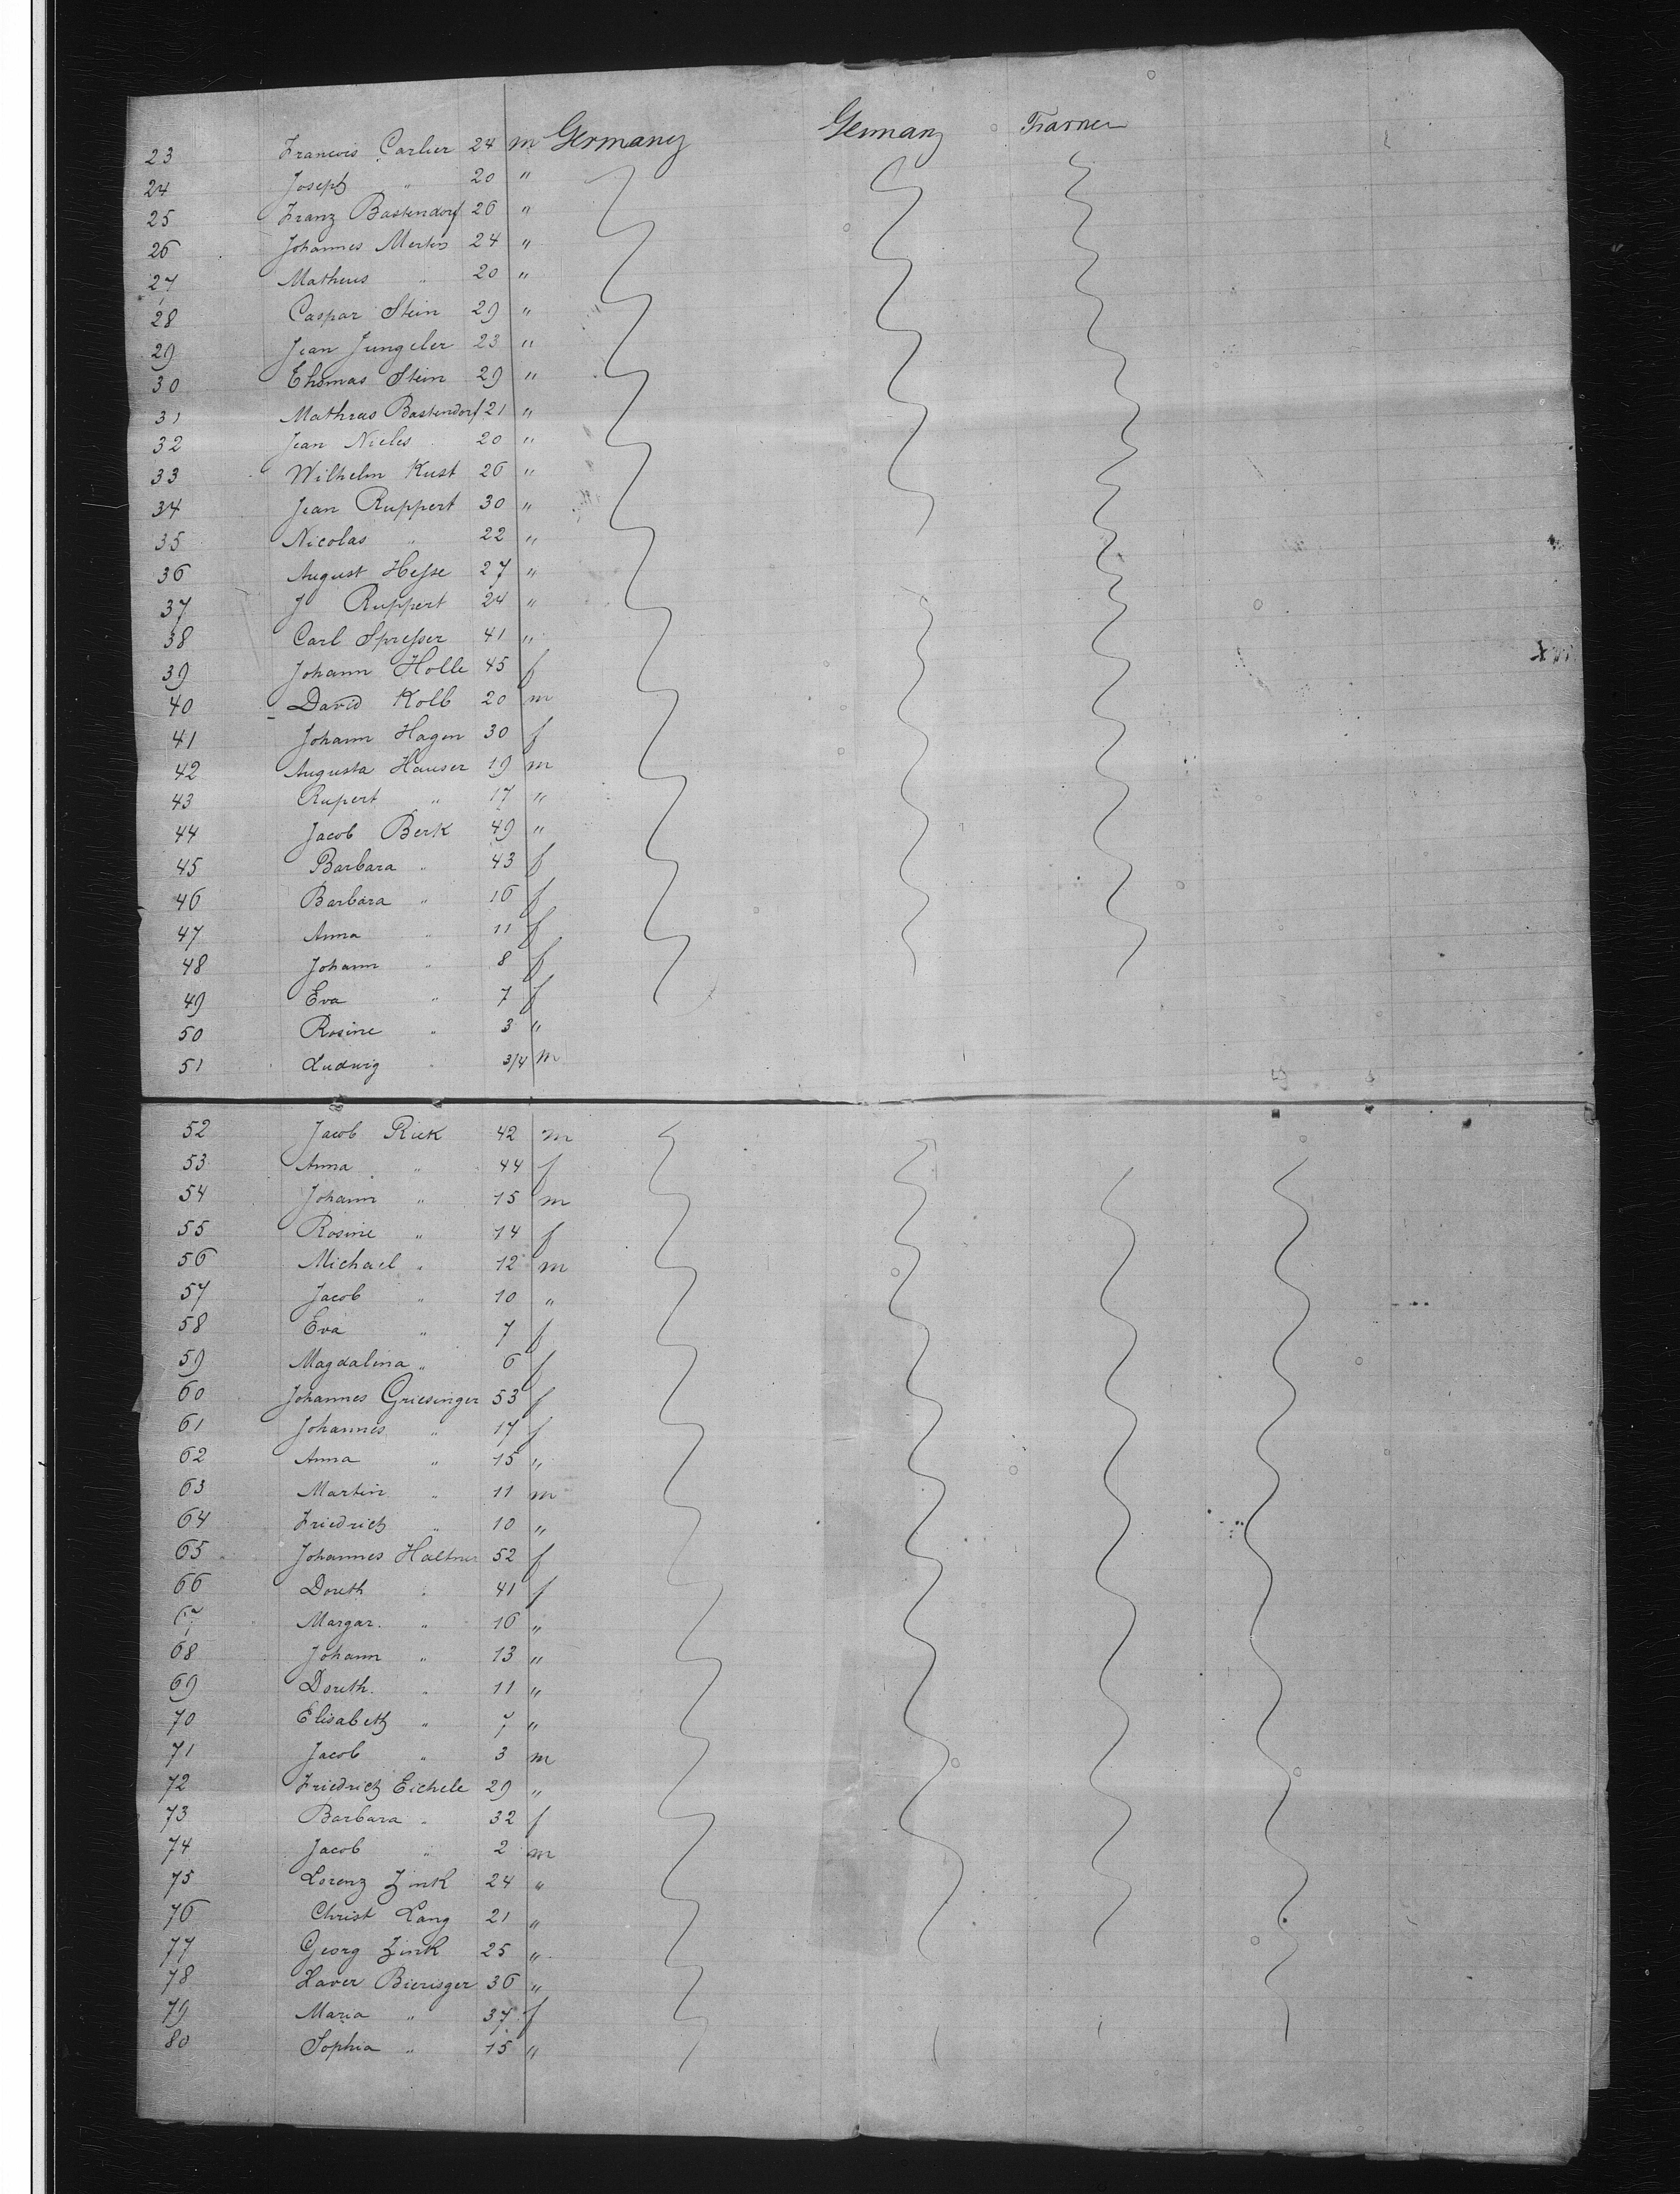 23 Francois Carlier 24 m Germany Germany Farmer
24 Joseph " 20 "
25 Franz Bastendorf 26 "
26 Johannes Mertes 24 "
27 Matheus " 20 "
28 Caspar Stein 29 "
29 Jean Jungeler 23 "
30 Thomas Stein 29 "
31 Mathias Bastendorf 21 "
32 Jean Nicles 20 "
33 Wilhelm Kust 26 "
34 Jean Ruppert 30 "
35 Nicolas " 22 "
36 August Hesse 27 "
37 J Ruppert 24 "
38 Carl Spresser 41 "
39 Johann Holle 45 f
40 David Kolb 20 m
41 Johann Hagen 30 f
42 Augusta Hauser 19 m
43 Rupert " 17 "
44 Jacob Berk 49 "
45 Barbara " 43 f
46 Barbara " 16 f
47 Anna " 11 f
48 Johann " 8 f
49 Eva " 7 f
50 Rosine " 3 "
51 Ludwig " 3/4 m
52 Jacob Rick 42 m
53 Anna " 44 f
54 Johann " 15 m
55 Rosine " 14 f
56 Michael " 12 m
57 Jacob " 10 "
58 Eva " 7 f
59 Magdalena " 6 f
60 Johannes Griesinger 53 f
61 Johannes " 17 f
62 Anna " 15 "
63 Martin " 11 m
64 Friedrich " 10 "
65 Johannes 52 f
66 Doreth " 41 f
67 Margar. " 16 "
68 Johann " 13 "
69 Doreth. " 11 "
70 Elisabeth " 7 "
71 Jacob " 3 m
72 Friedrich Eichele 29 "
73 Barbara " 32 f
74 Jacob " 2 m
75 Lorenz Zink 24 "
76 Christ Lang 21 "
77 Georg Zink 25 "
78 Xaver Bierisger 36 "
79 Maria " 37 f
80 Sophia " 15 "